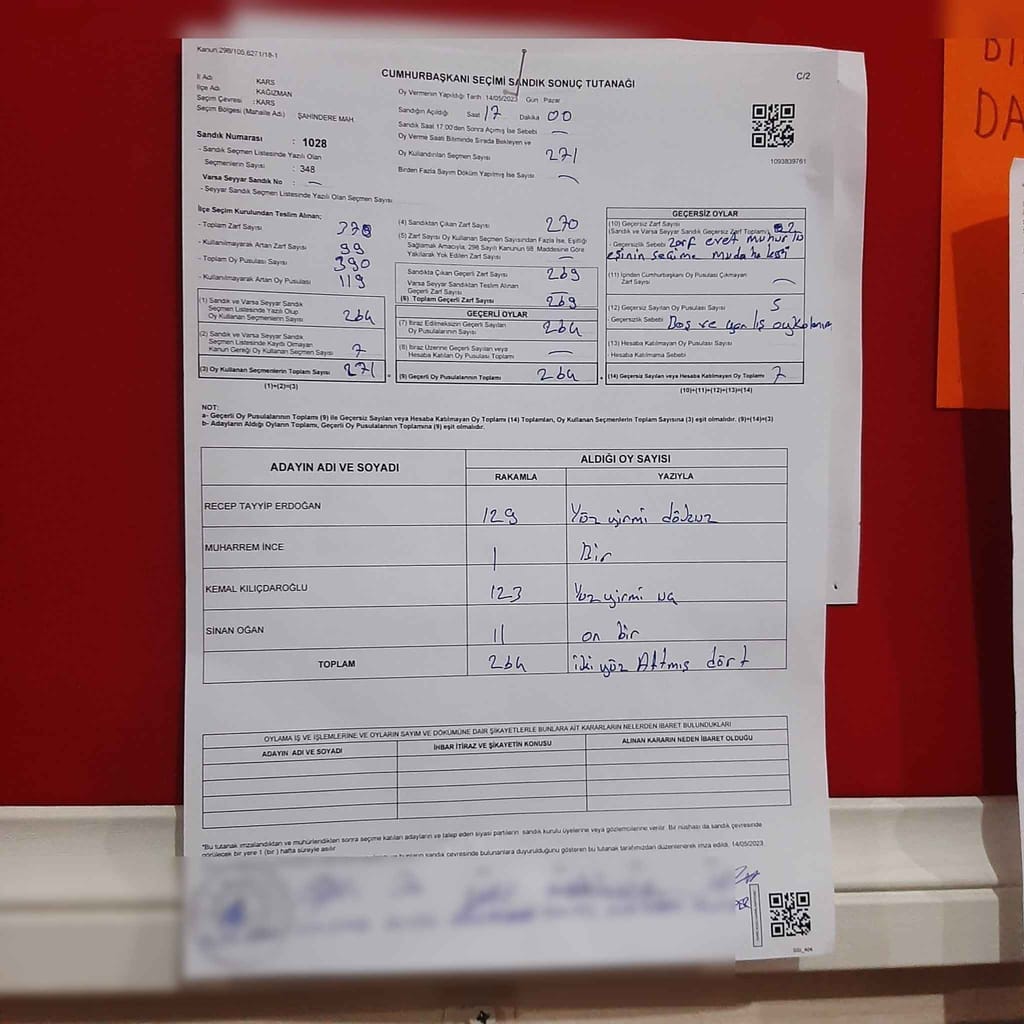 Kanun:298/105,6271/18-1
CUMHURBAŞKANI SEÇİMİ SANDIK SONUÇ TUTANAĞI
C/2
Bİ
DA
İl Adı : KARS
İlçe Adı : KAĞIZMAN
Seçim Çevresi : KARS
Seçim Bölgesi (Mahalle Adı) : ŞAHİNDERE MAH
Sandık Numarası : 1028
- Sandık Seçmen Listesinde Yazılı Olan
Seçmenlerin Sayısı : 348
Varsa Seyyar Sandık No : —
- Seyyar Sandık Seçmen Listesinde Yazılı Olan Seçmen Sayısı
Oy Vermenin Yapıldığı Tarih : 14/05/2023 Gün : Pazar
Sandığın Açıldığı Saat 17 Dakika 00
Sandık Saat 17:00'den Sonra Açılmış İse Sebebi —
Oy Verme Saati Bitiminde Sırada Bekleyen ve
Oy Kullandırılan Seçmen Sayısı 271
Birden Fazla Sayım Döküm Yapılmış İse Sayısı —
1093839761
İlçe Seçim Kurulundan Teslim Alınan;
- Toplam Zarf Sayısı
- Kullanılmayarak Artan Zarf Sayısı 99
- Toplam Oy Pusulası Sayısı 390
- Kullanılmayarak Artan Oy Pusulası 119
(1) Sandık ve Varsa Seyyar Sandık
Seçmen Listesinde Yazılı Olup
Oy Kullanan Seçmenlerin Sayısı 264
(2) Sandık ve Varsa Seyyar Sandık
Seçmen Listesinde Kaydı Olmayan
Kanun Gereği Oy Kullanan Seçmen Sayısı 7
(3) Oy Kullanan Seçmenlerin Toplam Sayısı 271
(1)+(2)=(3)
(4) Sandıktan Çıkan Zarf Sayısı 270
(5) Zarf Sayısı Oy Kullanan Seçmen Sayısından Fazla İse, Eşitliği
Sağlamak Amacıyla, 298 Sayılı Kanunun 98. Maddesine Göre
Yakılarak Yok Edilen Zarf Sayısı —
Sandıkta Çıkan Geçerli Zarf Sayısı 269
Varsa Seyyar Sandıktan Teslim Alınan
Geçerli Zarf Sayısı —
(6) Toplam Geçerli Zarf Sayısı 269
GEÇERLİ OYLAR
(7) İtiraz Edilmeksizin Geçerli Sayılan
Oy Pusulalarının Sayısı 264
(8) İtiraz Üzerine Geçerli Sayılan veya
Hesaba Katılan Oy Pusulası Toplamı —
(9) Geçerli Oy Pusulalarının Toplamı 264
GEÇERSİZ OYLAR
(10) Geçersiz Zarf Sayısı
(Sandık ve Varsa Seyyar Sandık Geçersiz Zarf Toplamı) 2
- Geçersizlik Sebebi zarf evet mühürlü
eşinin seçime mudahalesi
(11) İçinden Cumhurbaşkanı Oy Pusulası Çıkmayan
Zarf Sayısı —
(12) Geçersiz Sayılan Oy Pusulası Sayısı 5
- Geçersizlik Sebebi Boş ve yanlış oykullanım
(13) Hesaba Katılmayan Oy Pusulası Sayısı
- Hesaba Katılmama Sebebi
(14) Geçersiz Sayılan veya Hesaba Katılmayan Oy Toplamı 7
(10)+(11)+(12)+(13)=(14)
NOT:
a- Geçerli Oy Pusulalarının Toplamı (9) ile Geçersiz Sayılan veya Hesaba Katılmayan Oy Toplamı (14) Toplamları, Oy Kullanan Seçmenlerin Toplam Sayısına (3) eşit olmalıdır. (9)+(14)=(3)
b- Adayların Aldığı Oyların Toplamı, Geçerli Oy Pusulalarının Toplamına (9) eşit olmalıdır.
ADAYIN ADI VE SOYADI
ALDIĞI OY SAYISI
RAKAMLA YAZIYLA
RECEP TAYYİP ERDOĞAN 129 Yüz yirmi dokuz
MUHARREM İNCE 1 Bir
KEMAL KILIÇDAROĞLU 123 Yüz yirmi üç
SİNAN OĞAN 11 on bir
TOPLAM 264 iki yüz Altmış dört
OYLAMA İŞ VE İŞLEMLERİNE VE OYLARIN SAYIM VE DÖKÜMÜNE DAİR ŞİKAYETLERLE BUNLARA AİT KARARLARIN NELERDEN İBARET BULUNDUKLARI
ADAYIN ADI VE SOYADI İHBAR İTİRAZ VE ŞİKAYETİN KONUSU ALINAN KARARIN NEDEN İBARET OLDUĞU
*Bu tutanak imzalandıktan ve mühürlendikten sonra seçime katılan adayların ve talep eden siyasi partilerin sandık kurulu üyelerine veya gözlemcilerine verilir. Bir nüshası da sandık çevresinde
görülecek bir yere 1 (bir) hafta süreyle asılır
bunların sandık çevresinde bulunanlara duyurulduğunu gösteren bu tutanak tarafımızdan düzenlenerek imza edildi. 14/05/2023